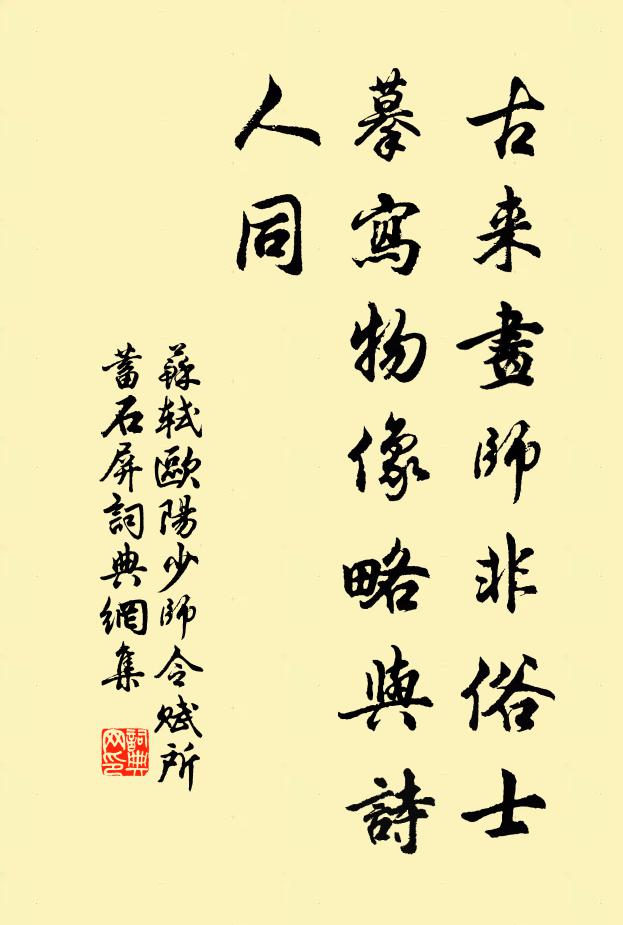 古来畫師非俗士
摹寫物像略與詩
人同
蘇軾歐陽少師令賦所
蓄石屏詞典網集
詞典
网印